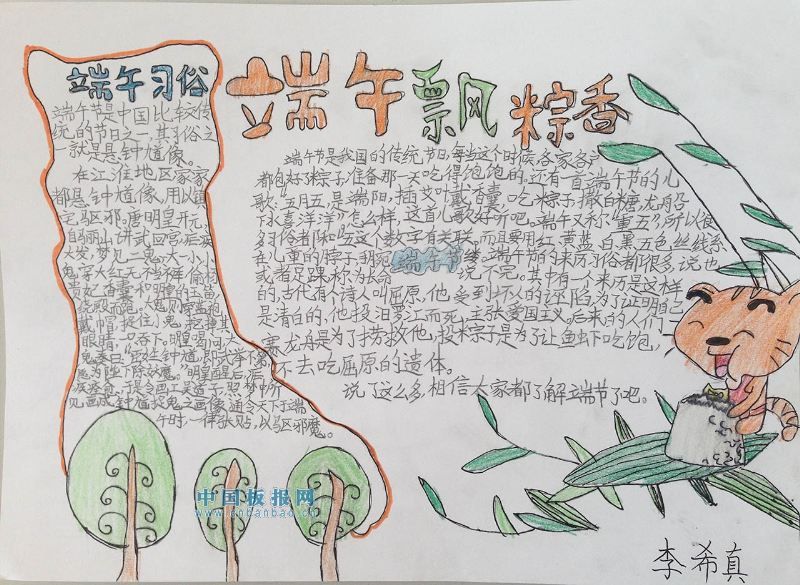 端午习俗
端午节是中国比较传
统的节日之一,其习俗之
一就是悬钟馗像。
在江淮地区家家
都悬钟馗像,用以镇
宅驱邪。唐明皇开元,
自骊山讲武回宫,
大发,梦见二鬼,一大一小,
小鬼穿大红无裆裤,偷杨
贵妃香囊和明皇的玉笛,
绕殿而跑。大鬼则穿蓝袍
戴帽,捉住小鬼,挖掉其
眼睛,一口吞下。明皇喝问,大
鬼奏曰:
为陛下除妖魔。"明皇醒后,
令画工吴道子
见画成钟馗捉鬼之画像,通令天下于端
午时,一律张贴,以驱邪魔。
端午飘粽香
端午节是我国的传统节日,每当这个时候,各家各户
都包好了粽子,准备那一天吃得饱饱的,还有一首端午节的儿
歌:"五月五,是端阳,插艾叶,戴香囊,吃粽子,撒白糖,龙舟
下水喜洋洋"怎么样,这首儿歌好听吧。端午又称"重五",所以很
多习俗都和"五"这个数字有关联。而且要用红、黄、蓝、白、黑五色丝线系
在儿童的脖子 端午节 。端午节的来历习俗都很多,说也
或者足踝,称为长命 说不完。其中有一个来历是这样
的,古代有个诗人叫屈原,他受到坏人的诬陷,为了证明自己
是清白的,他投汨罗江而死,主张爱国主义。后来的人们
赛龙舟是为了捞救他,投粽子是为了让鱼虾吃饱,
不去吃屈原的遗体。
说了这么多,相信大家都了解端节了吧。
中国板报网
www.cnbanbao.cn
李希真